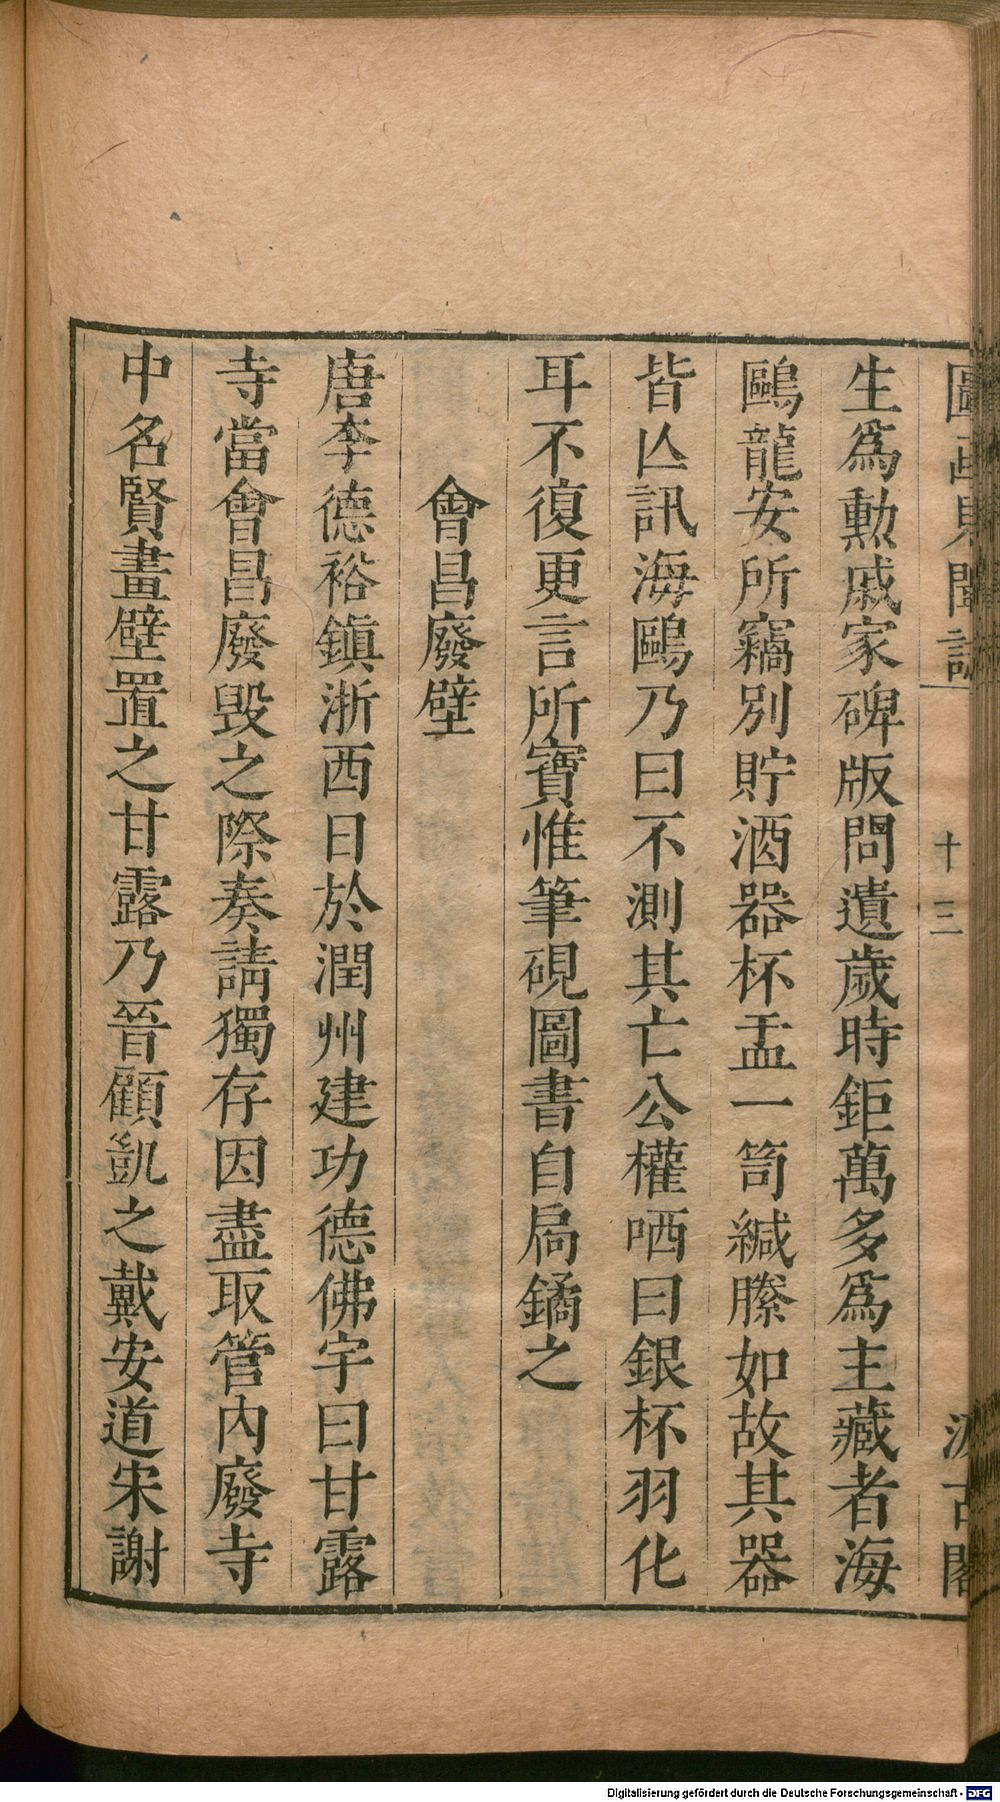 圖畫見聞誌　十三　汲古閣
生爲勲戚家碑版問遺歲時鉅萬多爲主藏者海
鷗龍安所竊別貯酒器杯盂一笥緘縢如故其器
皆亾訊海鷗乃曰不測其亡公權哂曰銀杯羽化
耳不復更言所寶惟筆硯圖書自扃鐍之
會昌廢壁
唐李德裕鎮浙西日於潤州建功德佛宇曰甘露
寺當會昌廢毁之際奏請獨存因盡取管内廢寺
中名賢畫壁置之甘露乃晉顧凱之戴安道宋謝
Digitalisierung gefördert durch die Deutsche Forschungsgemeinschaft - DFG